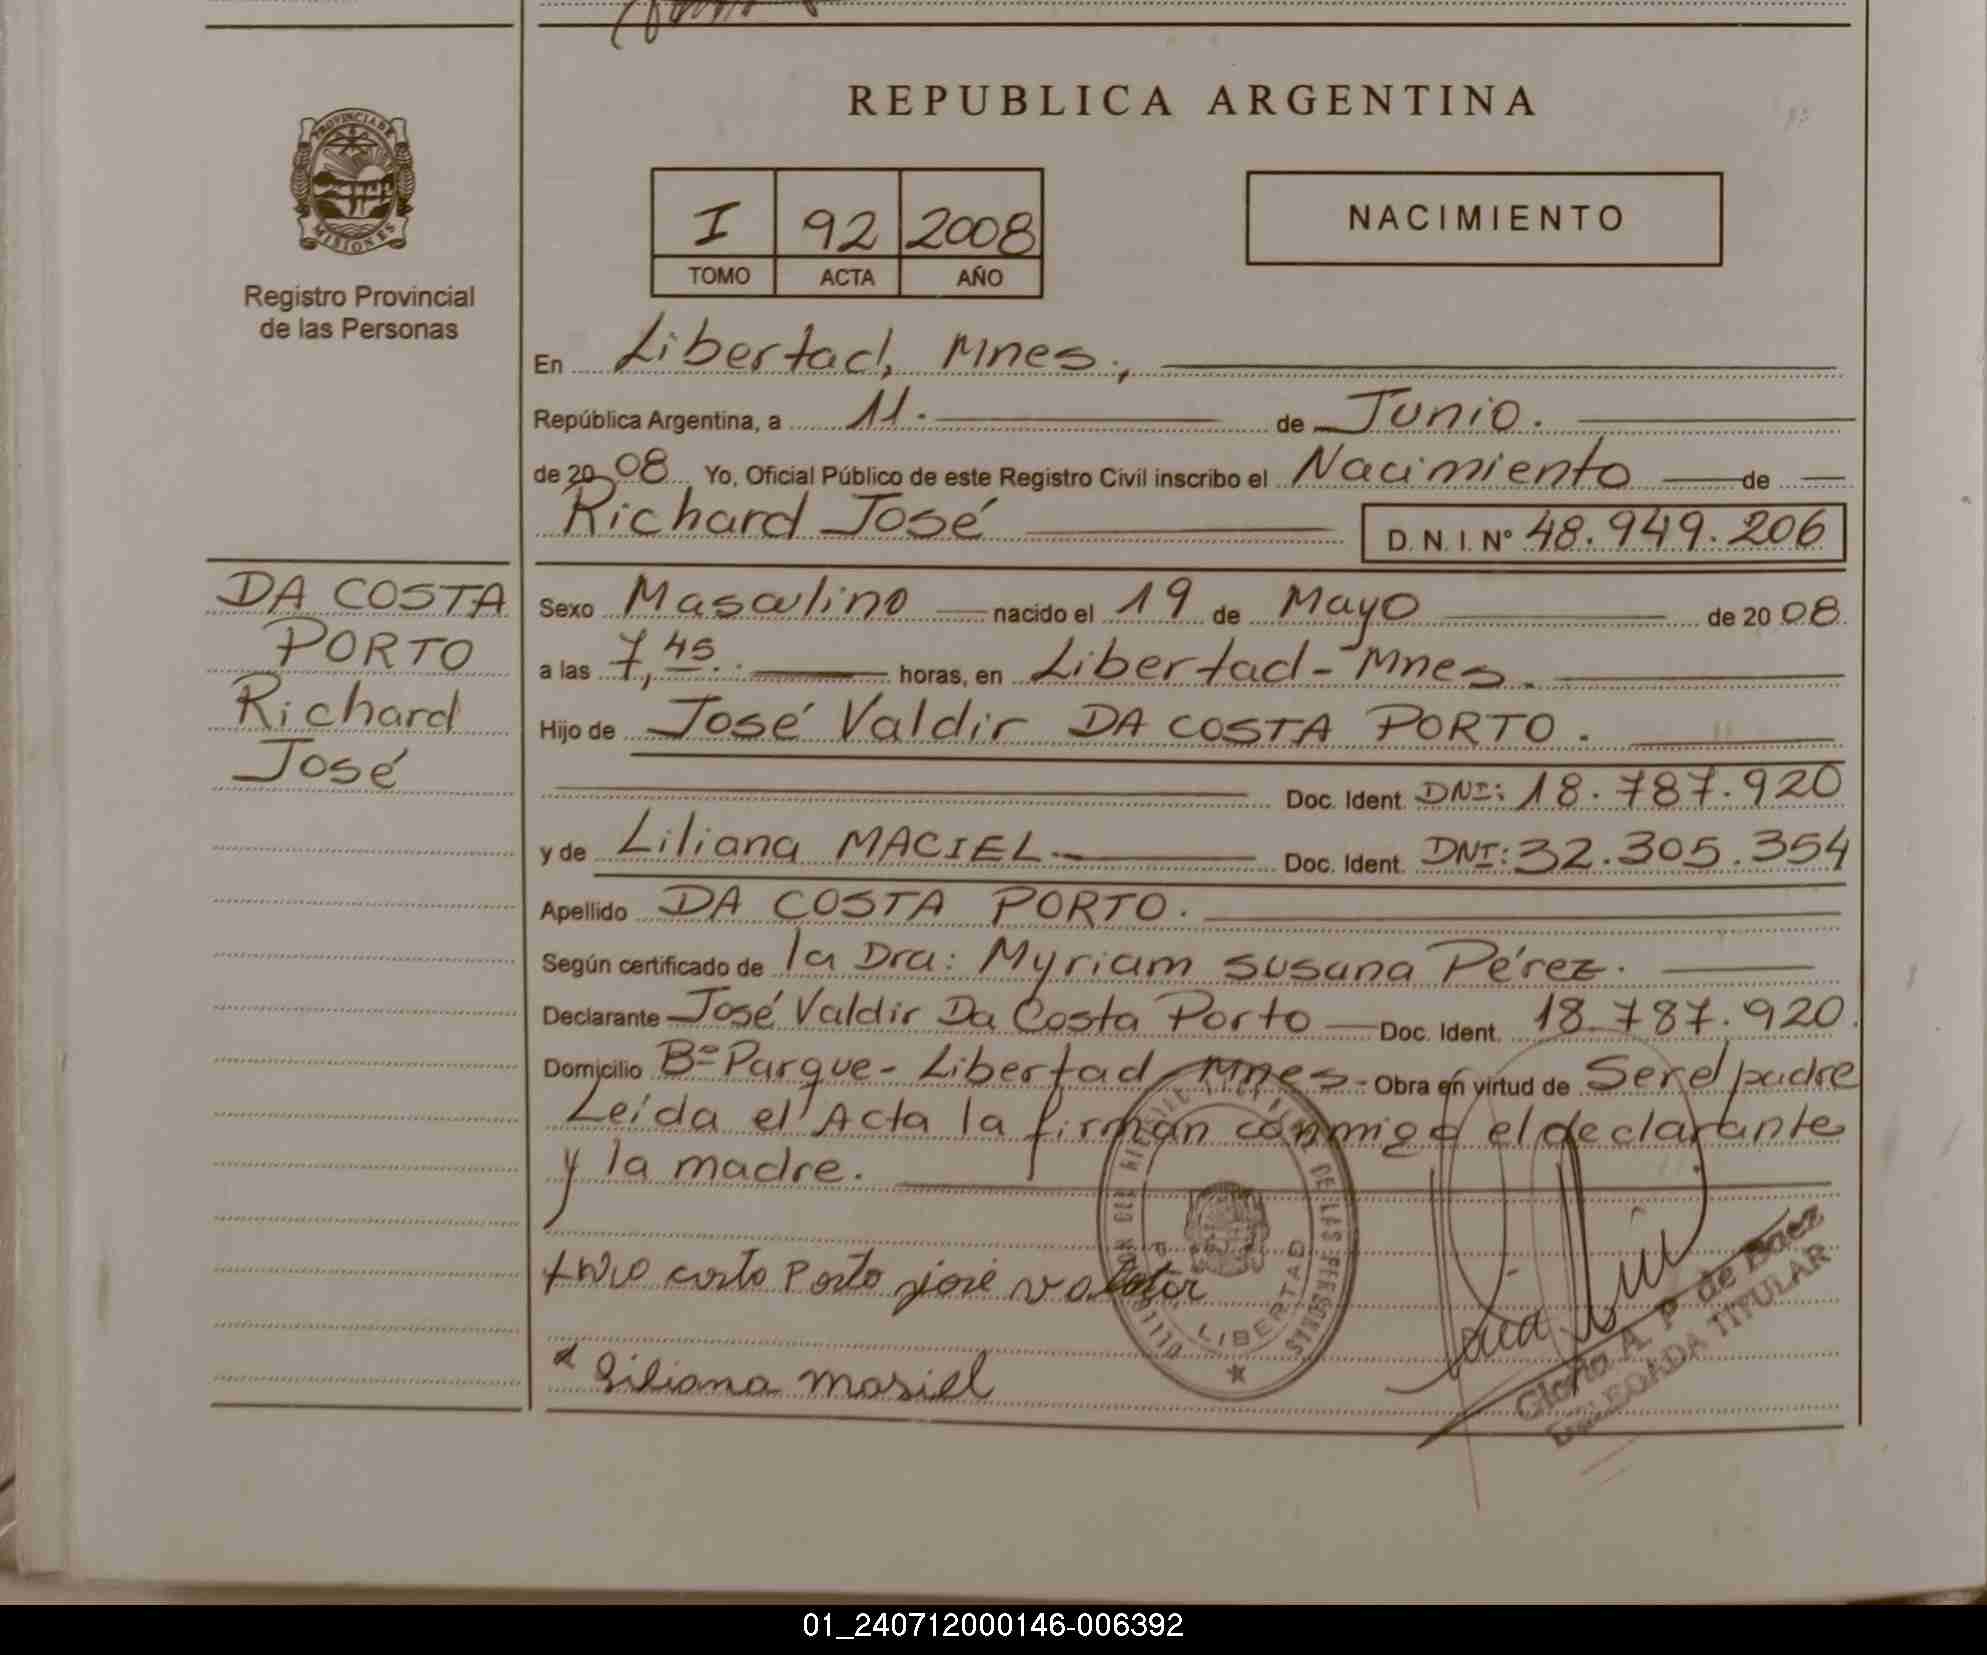 REPUBLICA ARGENTINA
PROVINCIA DE
MISIONES
Registro Provincial
de las Personas
I 92 2008
TOMO ACTA AÑO
NACIMIENTO
En Libertad, Mnes.,
República Argentina, a 11. de Junio.
de 2008 Yo, Oficial Público de este Registro Civil inscribo el Nacimiento de
Richard José D. N. I. Nº 48.949.206
DA COSTA
PORTO
Richard
José
Sexo Masculino nacido el 19 de Mayo de 2008.
a las 7,45. horas, en Libertad - Mnes.
Hijo de José Valdir DA COSTA PORTO.
Doc. Ident. DNI: 18.787.920
y de Liliana MACIEL. Doc. Ident. DNI: 32.305.354
Apellido DA COSTA PORTO.
Según certificado de la Dra: Myriam Susana Pérez.
Declarante José Valdir Da Costa Porto Doc. Ident. 18.787.920.
Domicilio Bº Parque - Libertad Mnes - Obra en virtud de Ser el padre
Leída el Acta la firman conmigo el declarante
y la madre.
costo Porto josé
Liliana Masiel
DE LAS PERSONAS
LIBERTAD
Gloria A. P. de Baez
DELEGADA TITULAR
01_240712000146-006392